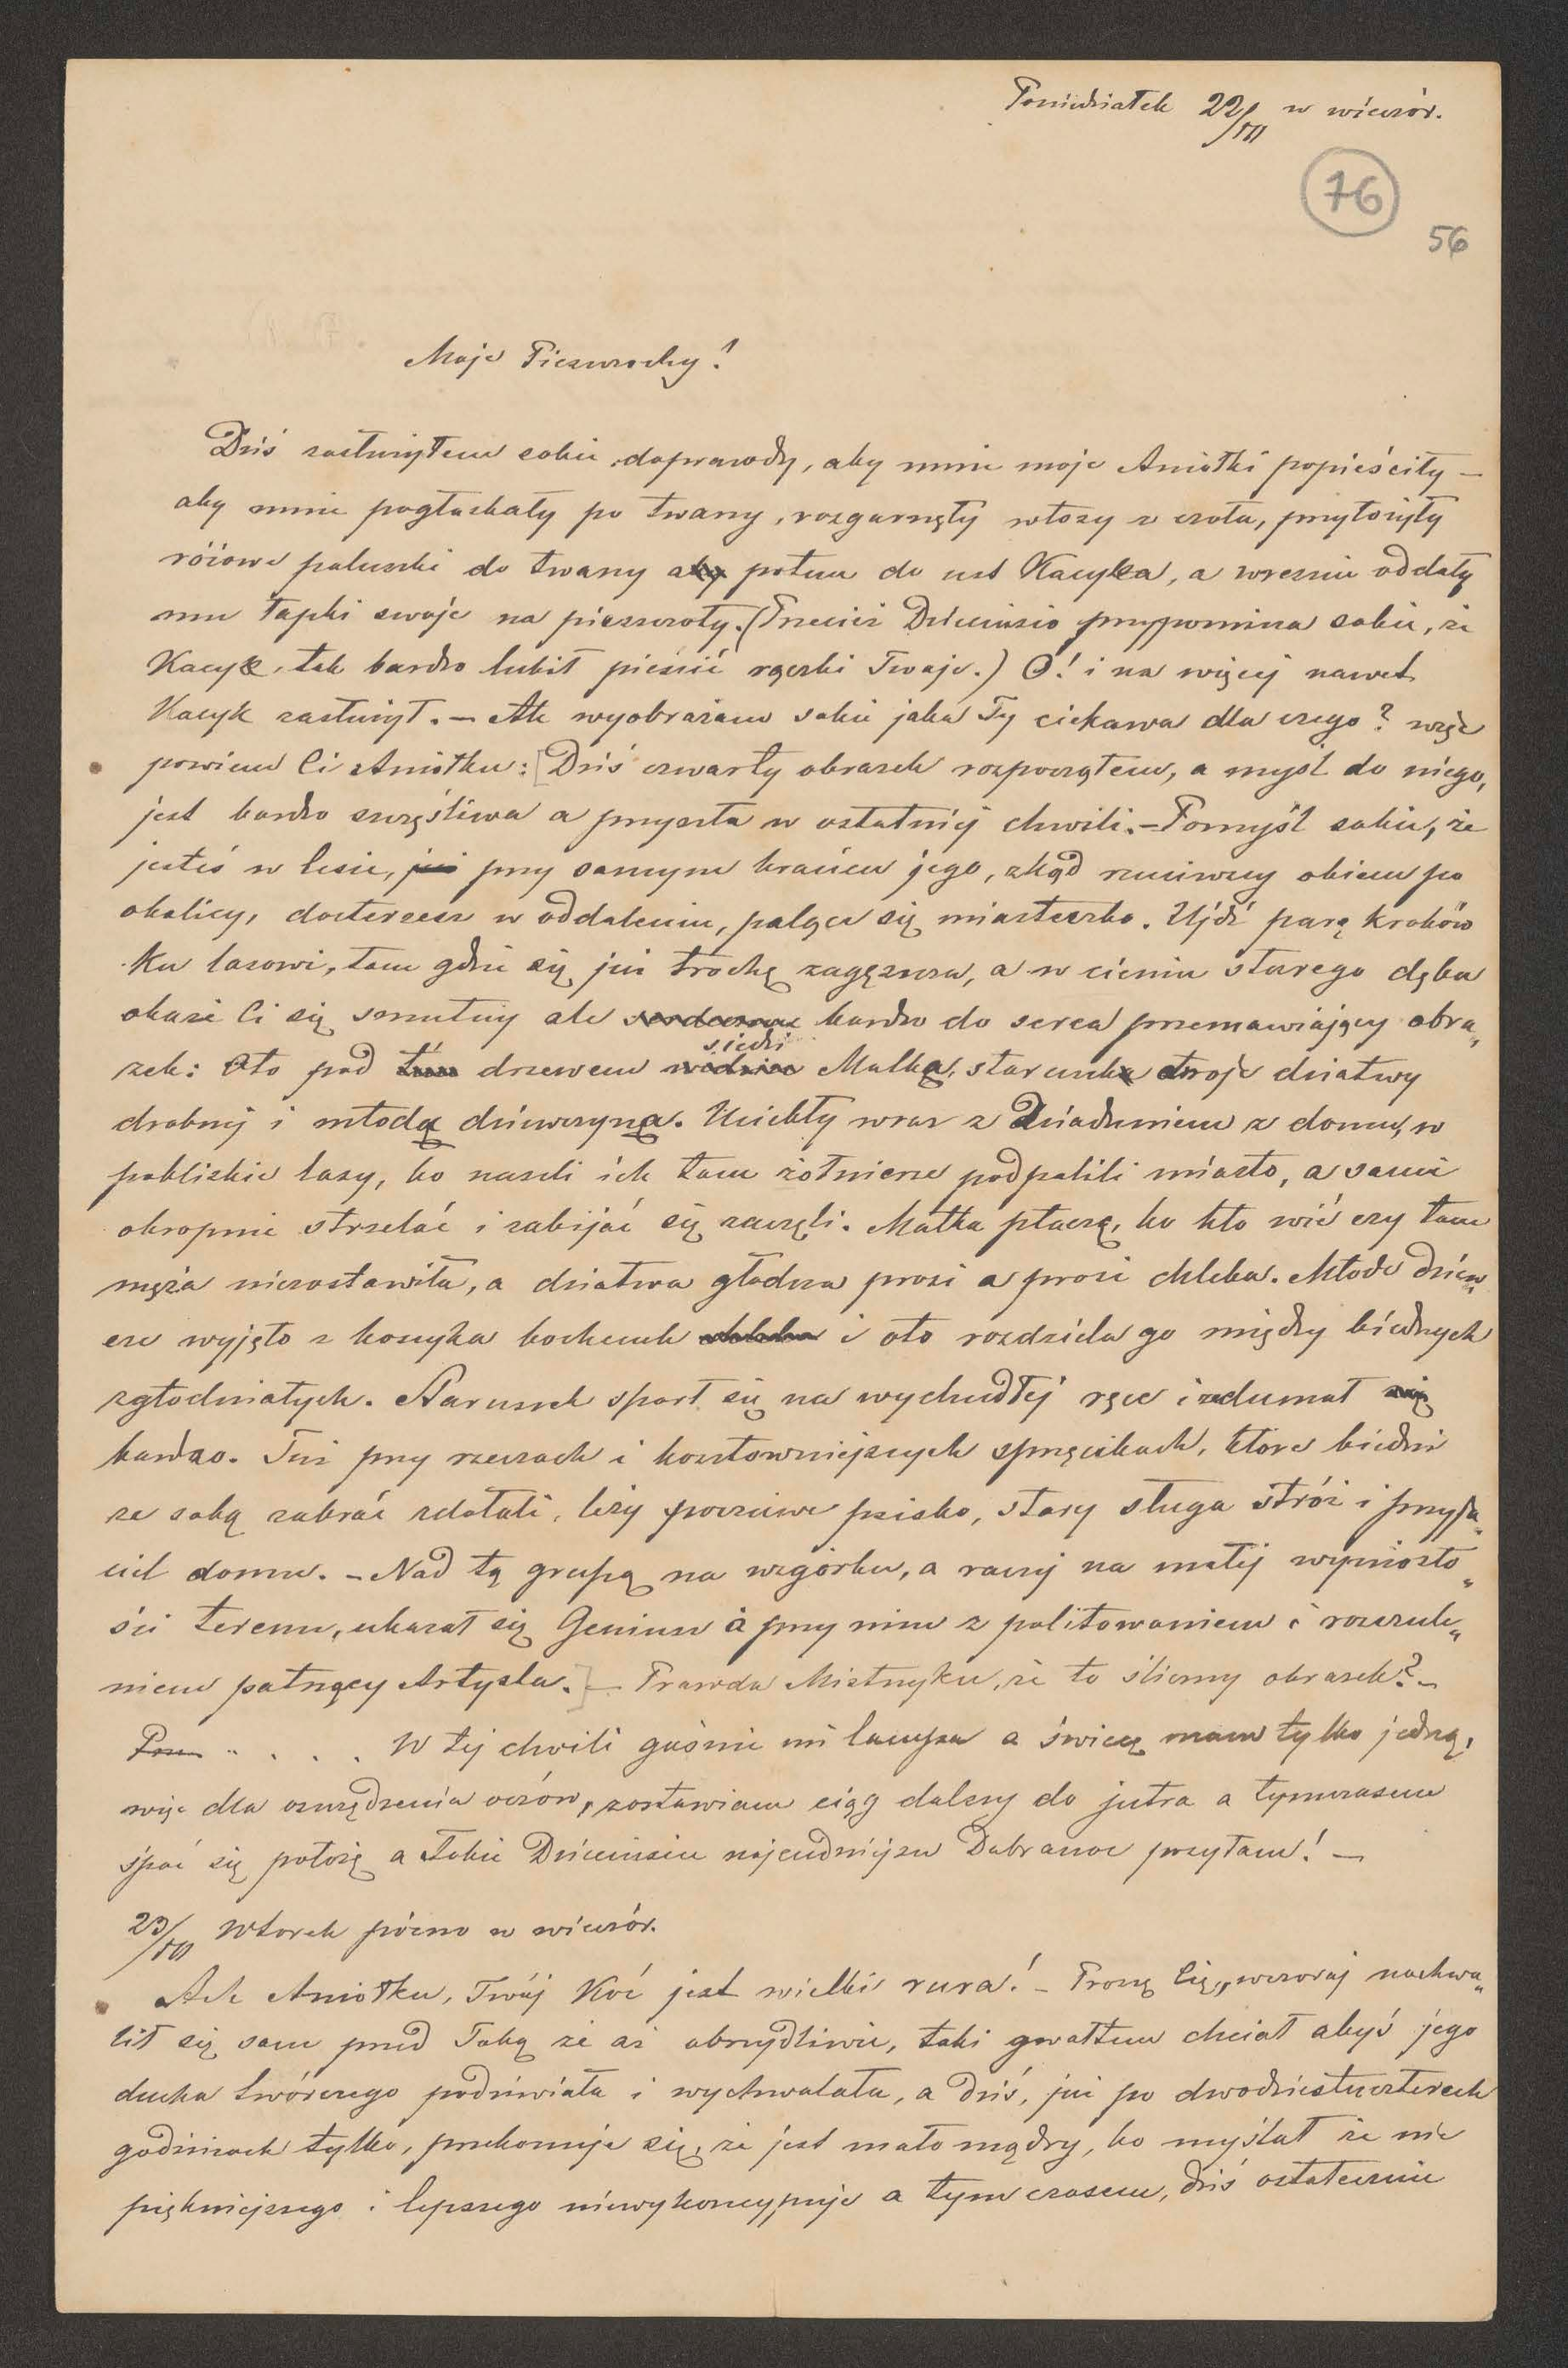 Poniedziałek 22/III w wieczór.
76
56
Moje Pieszczochy!
Dziś zasłużyłem sobie doprawdy, aby mnie moje Aniołki popieściły —
aby mnie pogłaskały po twarzy, rozgarnęły włosy z czoła, przyłożyły
różowe paluszki do twarzy aby potem do ust Kacyka, a wreszcie oddały
mu łapki swoje na pieszczoty. (Przecież Dzieciusio przypomina sobie, że
Kacyk, tak bardzo lubił pieścić rączki Twoje.) O! i na więcej nawet
Kacyk zasłużył. — Ale wyobrażam sobie jaka Ty ciekawa dla czego? więc
powiem Ci Aniołku: [Dziś czwarty obrazek rozpocząłem, a myśl do niego,
jest bardzo szczęśliwa a przyszła w ostatniéj chwili. — Pomyśl sobie, że
jesteś w lesie, już przy samym krańcu jego, zkąd rzuciwszy okiem po
okolicy, dostrzeżesz w oddaleniu, palące się miasteczko. Ujdź parę kroków
ku lasowi, tam gdzie się już trochę zagęszcza, a w cieniu starego dęba
okaże Ci się smutny ale serdeczny bardzo do serca przemawiający obra„
zek: Oto pod tém drzewem siedzi Matka, staruszek troje dziatwy
drobnéj i młodą dziewczyną. Uciekły wraz z Dziaduniem z domu, w
pobliskie lasy, bo naszli ich tam żołnierze podpalili miasto, a sami
okropnie strzelać i zabijać się zaczęli. Matka płaczę, bo kto wié czy tam
męża niezostawiła, a dziatwa głodna prosi a prosi chleba. Młode dziew„
cze wyjęło z koszyka bochenek chleba i oto rozdziela go między biédnych
zgłodniałych. Staruszek sparł się na wychudłéj ręce i zadumał się
bardzo. Tuż przy rzeczach i kosztowniejszych sprzęcikach, które biedni
ze sobą zabrać zdołali, leży poczciwe psisko, stary sługa stróż i przyja„
ciel domu. — Nad tą grupą na wzgórku, a raczéj na małéj wyniosło„
ści terenu, ukazał się Geniusz i przy nim z politowaniem i rozczule„
niem patrzący Artysta.] — Prawda Mistrzyku, że to śliczny obrazek? —
Pra . . . . W téj chwili gaśnie mi lampa a świecę mam tylko jedną,
więc dla oszczędzenia oczów, zostawiam ciąg dalszy do jutra a tymczasem
śpać się położę a Tobie Dzieciusiu najcudniejszą Dobranoc przyłam! —
23/III Wtorek późno w wieczór.
Ach Aniołku, Twój Koć jest wielki rura! — Proszę Cię, wczoraj nachwa„
lił się sam przed Tobą że aż obrzydliwie, taki gwałtem chciał abyś jego
ducha twórczego podziwiała i wychwalała, a dziś, już po dwudziestuczterech
godzinach tylko, przekonuje się, że jest mało mądry, bo myślał że nic
piękniejszego i lepszego niewykoncypuje a tymczasem, dziś ostatecznie